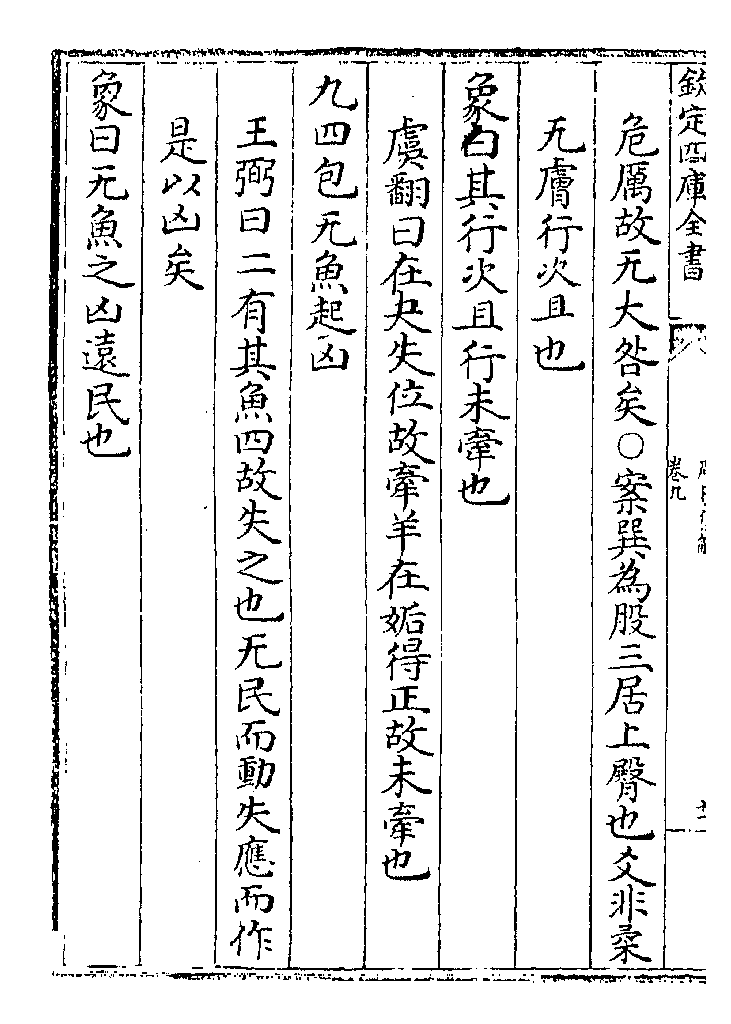 欽定四庫全書
卷九
危厲故无大咎矣○案巽為股三居上臀也爻非柔
无膚行次且也
象曰其行次且行未牽也
虞翻曰在夬失位故牽羊在姤得正故未牽也
九四包无魚起凶
王弼曰二有其魚四故失之也无民而動失應而作
是以凶矣
象曰无魚之凶遠民也